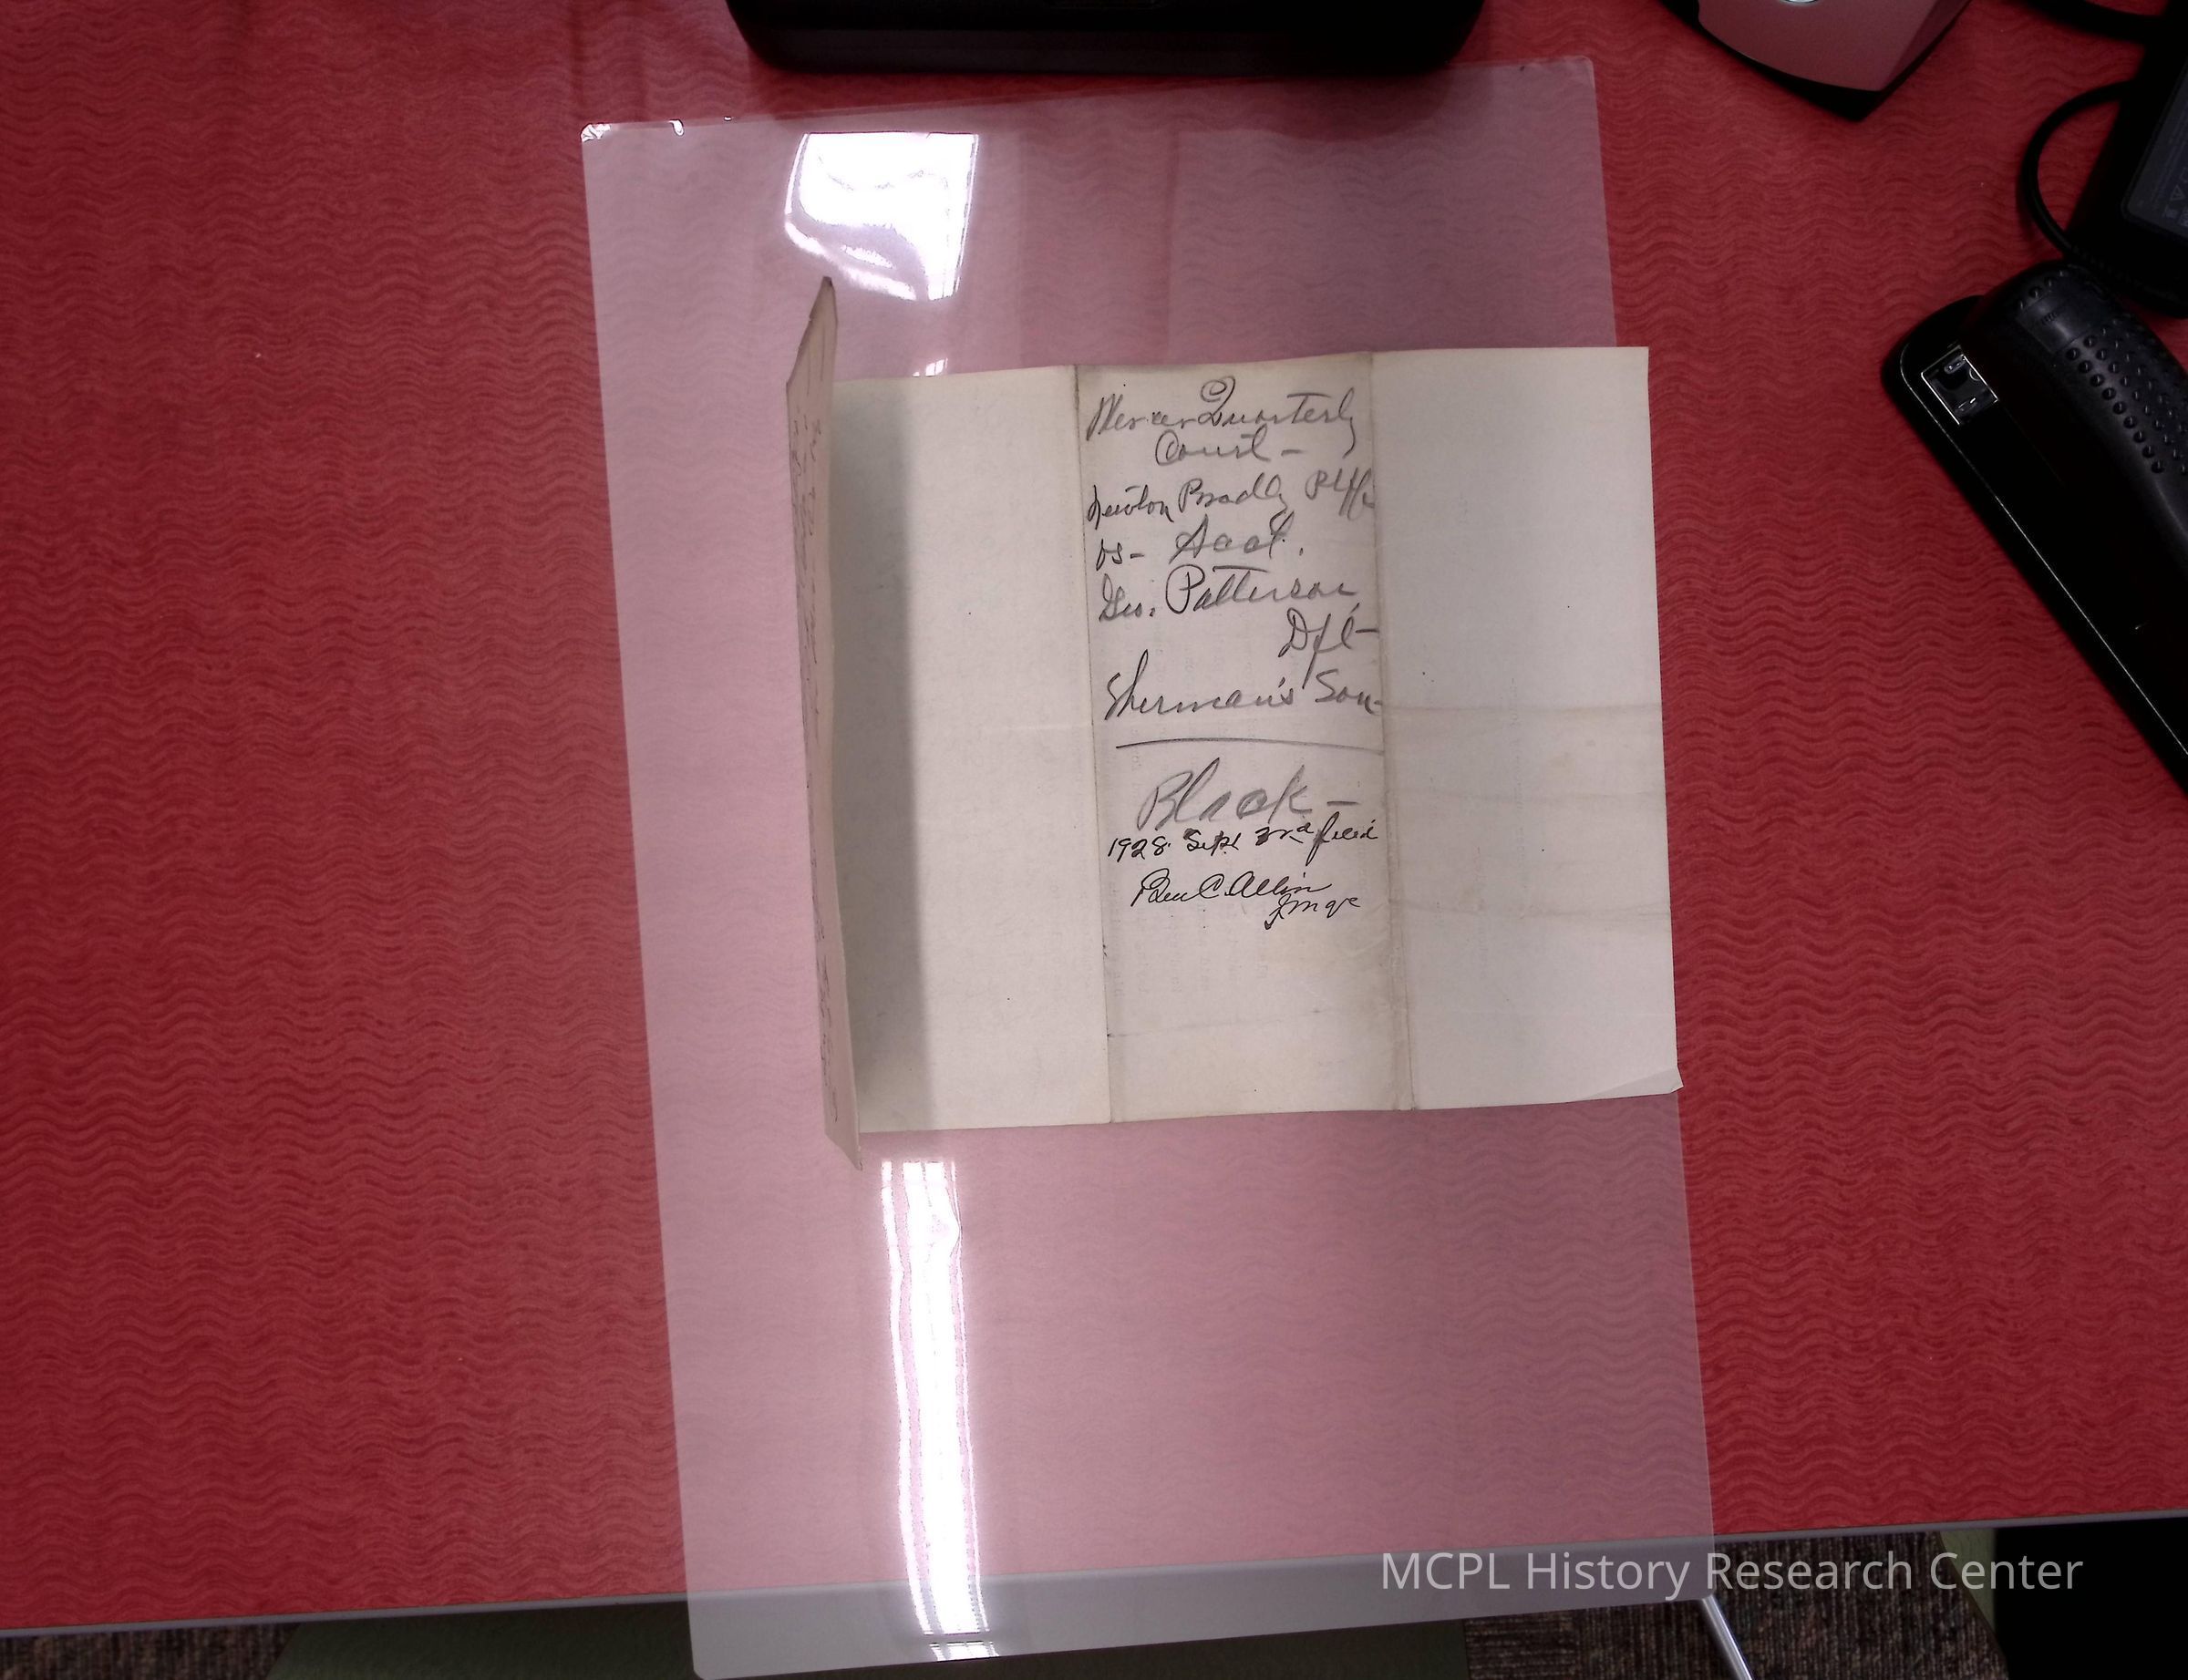 Mercer Quarterly
Court -
Newton Bradly Pltff
vs-
Geo. Patterson
Dft -
Sherman's Son-
Black -
1928. Sept 3rd filed
Ben C. Allin
MCPL History Research Center